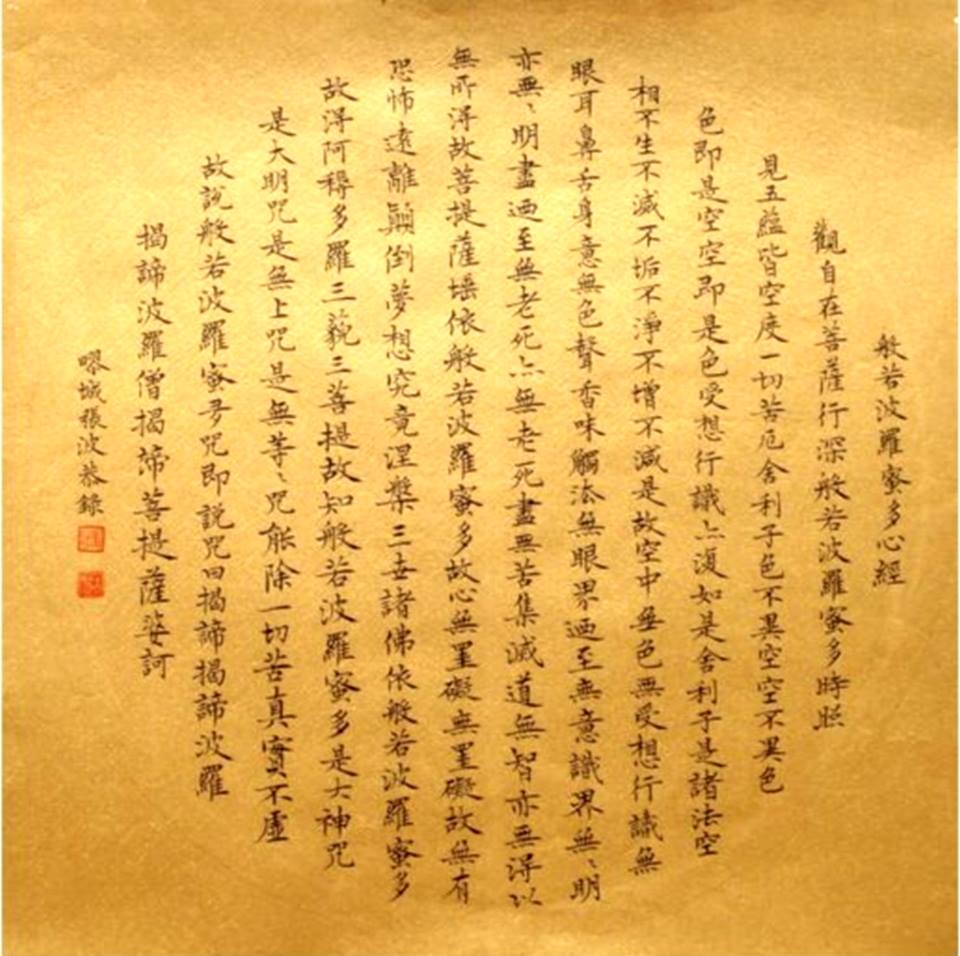 般若波羅蜜多心經
觀自在菩薩行深般若波羅蜜多時照
見五蘊皆空度一切苦厄舍利子色不異空空不異色
色即是空空即是色受想行識亦復如是舍利子是諸法空
相不生不滅不垢不淨不增不減是故空中無色無受想行識無
眼耳鼻舌身意無色聲香味觸法無眼界迺至無意識界無、明
亦無、明盡迺至無老死亦無老死盡無苦集滅道無智亦無得以
無所得故菩提薩埵依般若波羅蜜多故心無罣礙無罣礙故無有
恐怖遠離顛倒夢想究竟涅槃三世諸佛依般若波羅蜜多
故得阿耨多羅三藐三菩提故知般若波羅蜜多是大神咒
是大明咒是無上咒是無等、咒能除一切苦真實不虛
故說般若波羅蜜多咒即說咒曰揭諦揭諦波羅
揭諦波羅僧揭諦菩提薩婆訶
嘐城張波恭錄